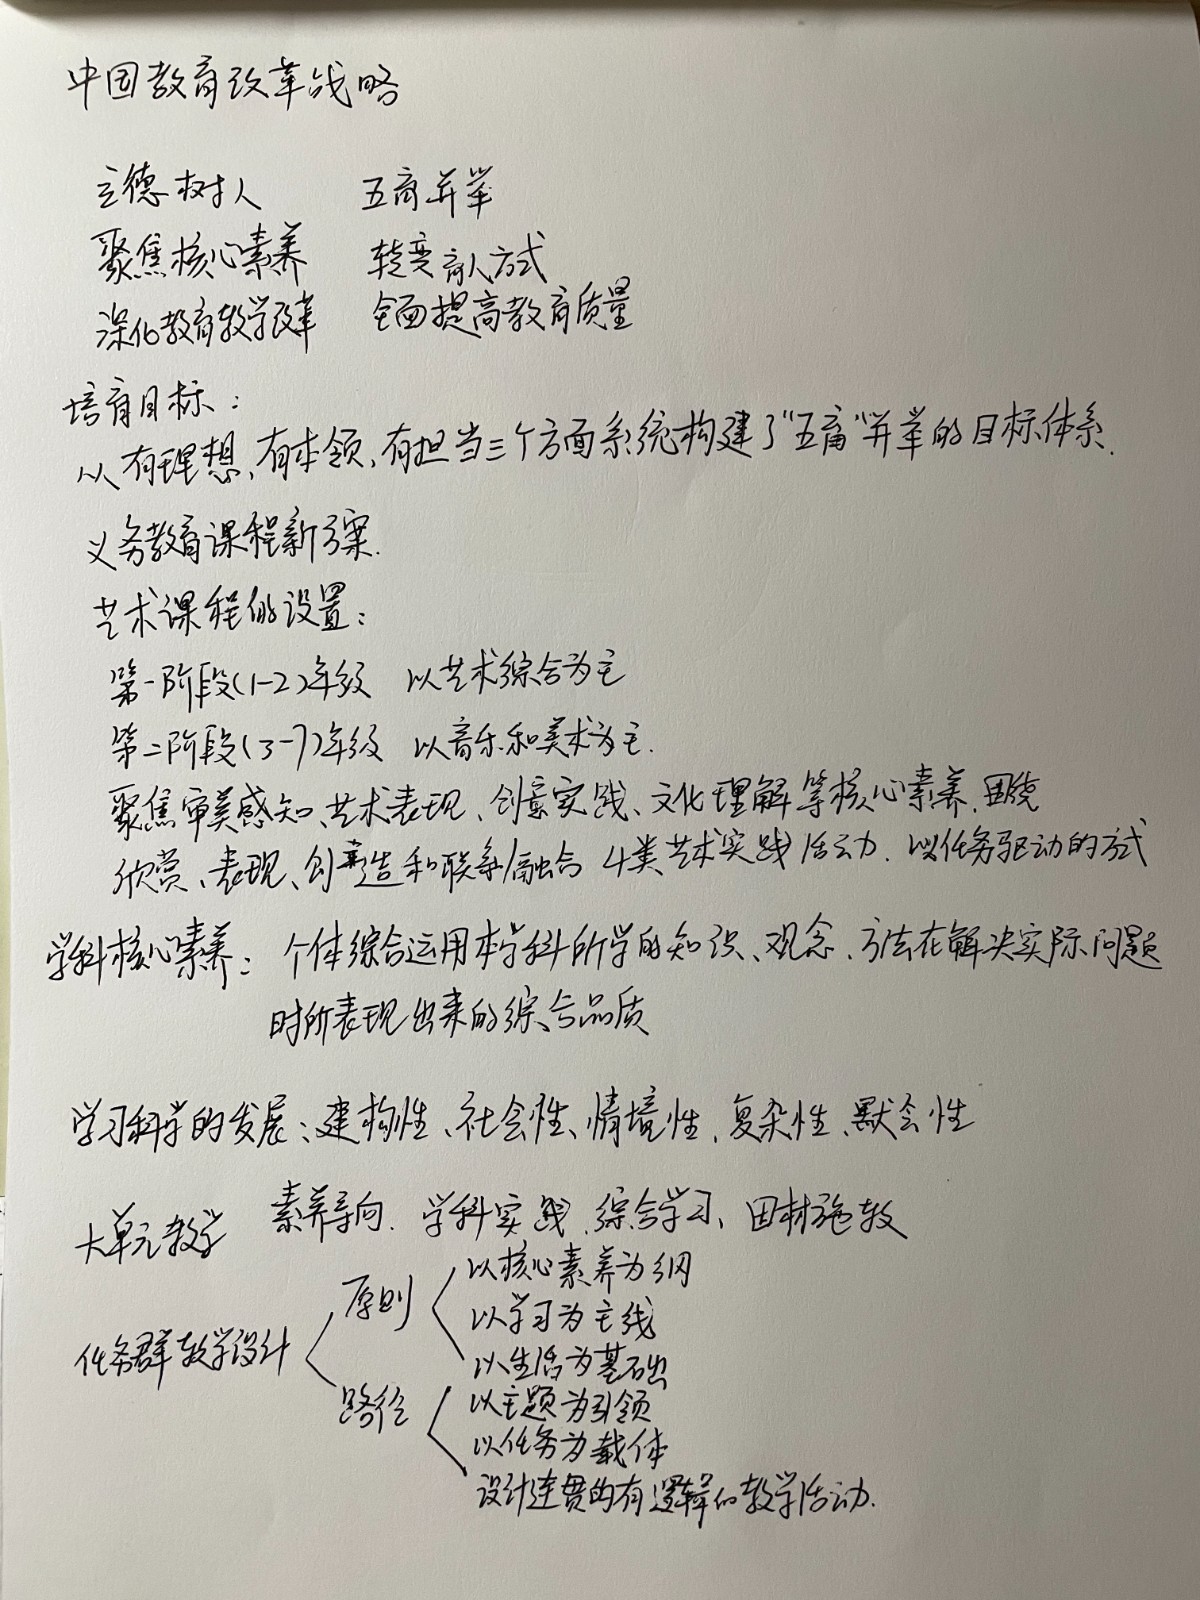 中国教育改革战略
立德树人 五育并举
聚焦核心素养 转变育人方式
深化教育教学改革 全面提高教育质量
培育目标：
从有理想、有本领、有担当三个方面系统构建了"五育"并举的目标体系.
义务教育课程新方案.
艺术课程的设置：
第一阶段(1-2)年级 以艺术综合为主
第二阶段(3-7)年级 以音乐和美术为主.
聚焦审美感知、艺术表现、创意实践、文化理解等核心素养.围绕
欣赏、表现、创造和联系/融合 4类艺术实践活动. 以任务驱动的方式
学科核心素养： 个体综合运用本学科所学的知识、观念、方法在解决实际问题
时所表现出来的综合品质
学习科学的发展：建构性、社会性、情境性、复杂性、默会性
大单元教学 素养导向. 学科实践.综合学习、因材施教
任务群教学设计
原则
以核心素养为纲
以学习为主线
以生活为基础
路径
以主题为引领
以任务为载体
设计连贯的有逻辑的教学活动.